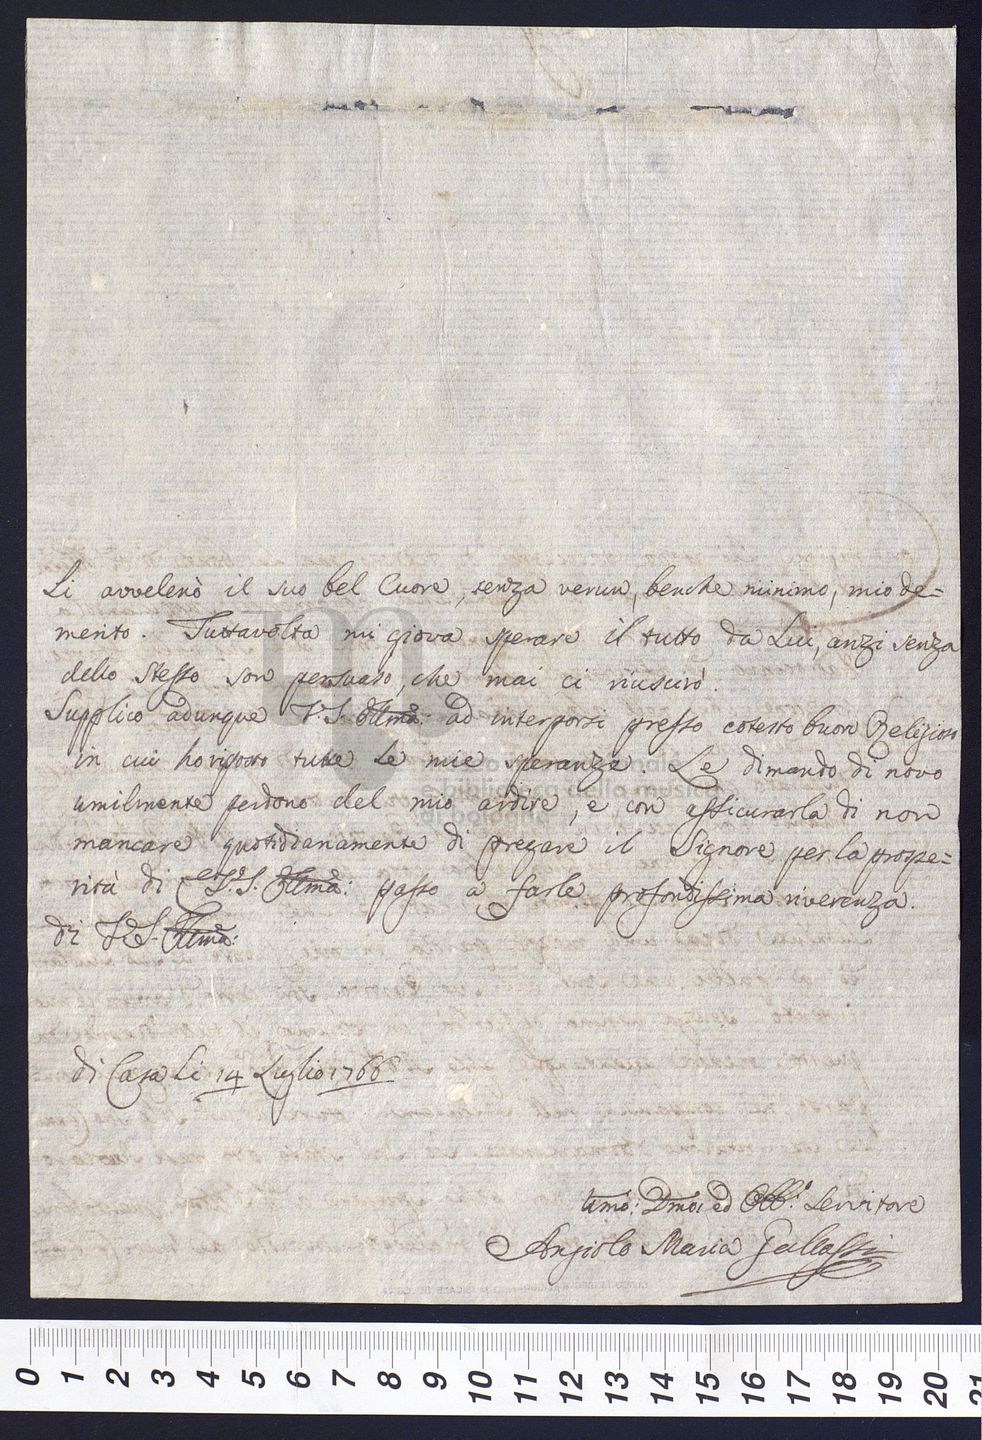 li avvelenò il suo bel Cuore, senza verun, benche minimo, mio de=
merito. Tuttavolta mi giova sperare il tutto da Lui, anzi senza
dello stesso son persuaso, che mai ci riuscirò.
Supplico adunque V.S. Illma: ad interporsi presso cotesto buon Religioso
in cui ho riposto tutte le mie speranze. Le dimando di novo
umilmente perdono del mio ardire, e con assicurarla di non
mancare quotidianamente di pregare il Signore per la prospe=
rità di V.S. Illma: passo a farle profondissima riverenza.
di V.S. Illma:
di Casa li 14 Luglio 1766
Umo: Dmo: ed Obb:o Servitore
Angiolo Maria Galassi
museo internazionale
e biblioteca della musica
di bologna
0 1 2 3 4 5 6 7 8 9 10 11 12 13 14 15 16 17 18 19 20 21